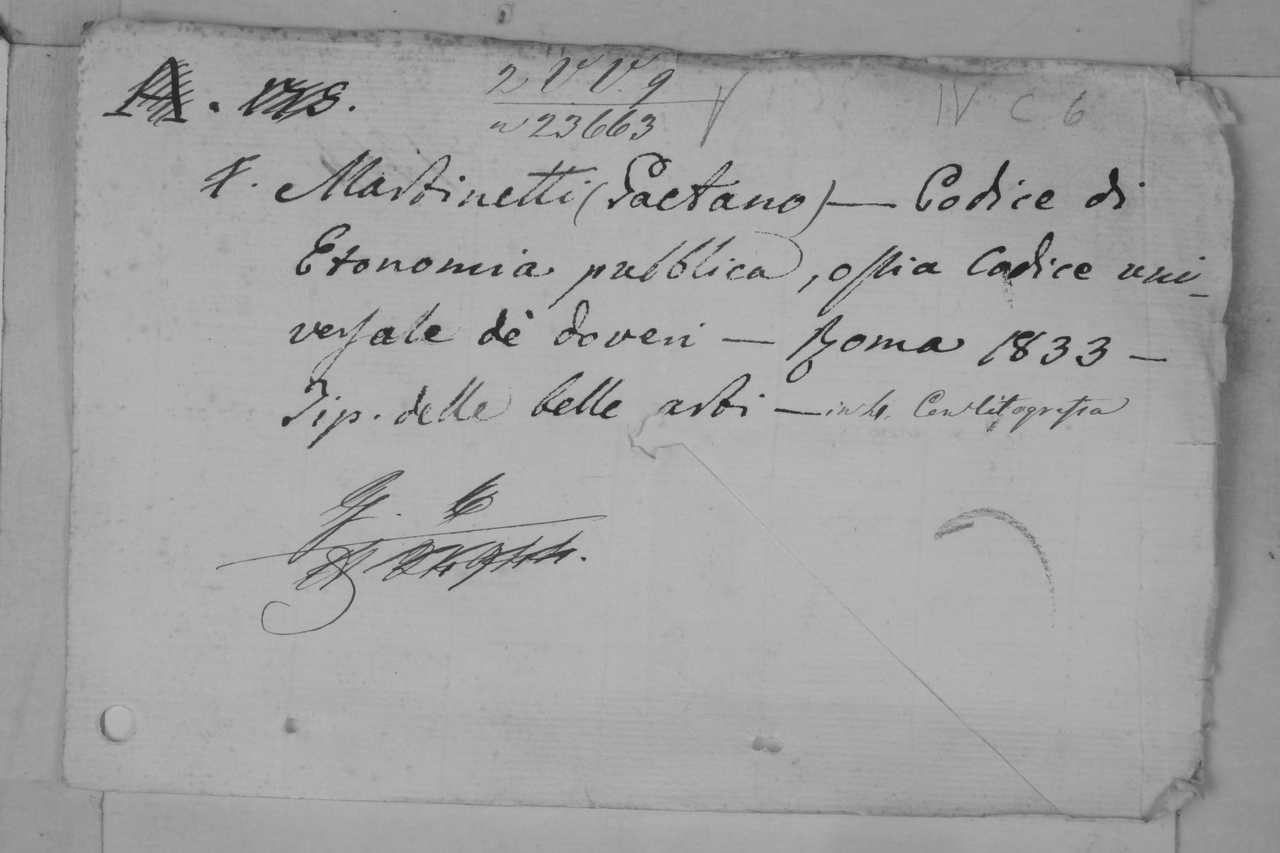 2 V V. 9
n 23663
IV C 6
Martinetti (Gaetano) — Codice di
Economia pubblica, ossia Codice uni-
versale de' doveri — Roma 1833 —
Tip. delle belle arti — in 4. Con litografia